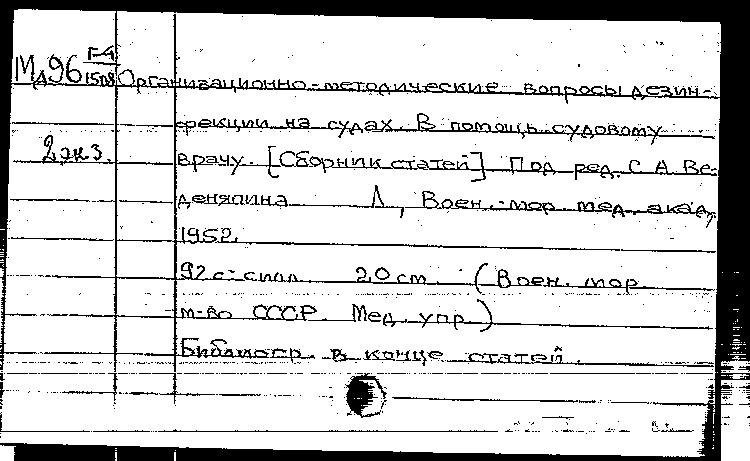 Мд96 Г-4
Организационно-методические вопросы дезин-
фекции на судах. В помощь судовому
2 экз.
врачу. [Сборник статей] Под ред. С. А. Ве-
деняпина Л, Воен.-мор. мед. акад,
1952.
92 с. с илл. 20 см. (Воен. мор.
м-во СССР. Мед. упр)
Библиогр. в конце статей.